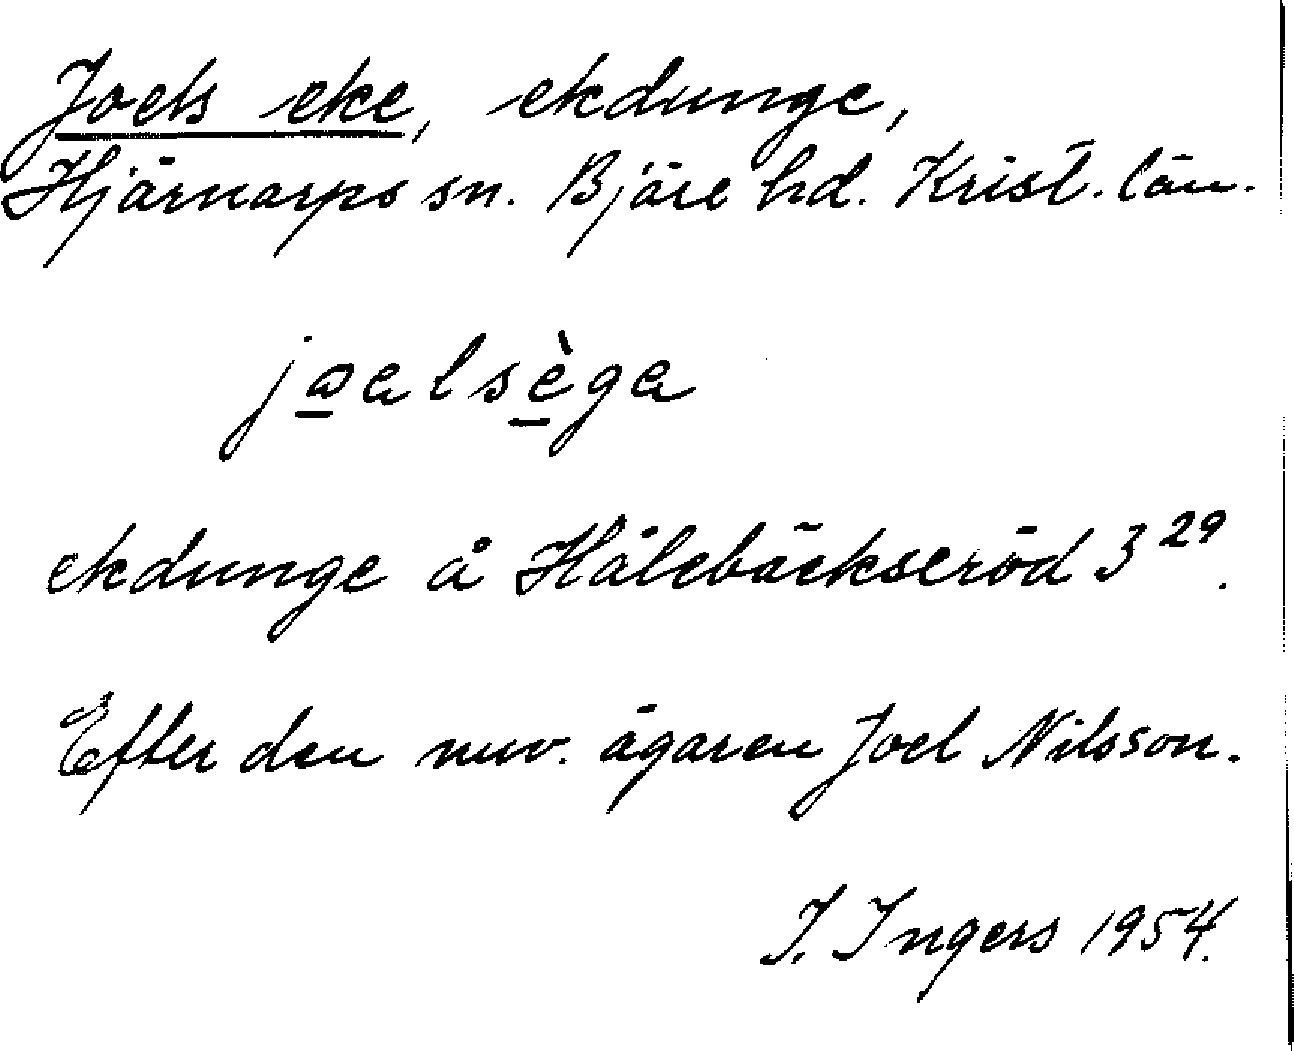 Joels eke, ekdunge,
Hjärnarps sn. Bjäre hd. Krist. län.
joalsèga
ekdunge å Hålebäckseröd 3 29.
Efter den nuv. ägaren Joel Nilsson.
I. Ingers 1954.